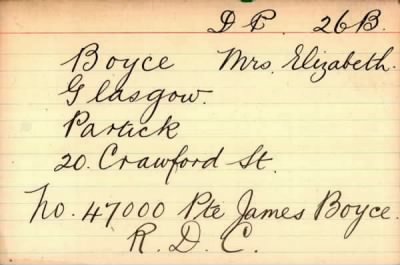 D P. 26B.
Boyce Mrs. Elizabeth.
Glasgow.
Partick
20. Crawford St.
No. 47000 Pte James Boyce.
R. D. C.